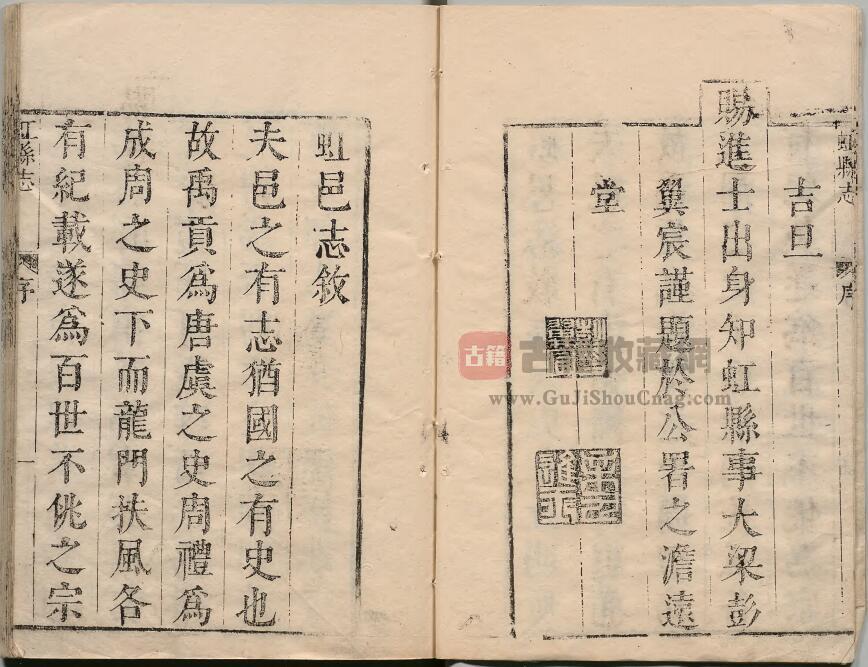 虹縣志
序
吉旦
賜進士出身知虹縣事大梁彭
翼宸謹題於公署之澹遠
堂
虹邑志敘
夫邑之有志猶國之有史也
故禹貢爲唐虞之史周禮爲
成周之史下而龍門扶風各
有紀載遂爲百世不佻之宗
虹縣志
序
一
古籍
古籍收藏網
www.GuJiShouCnag.com